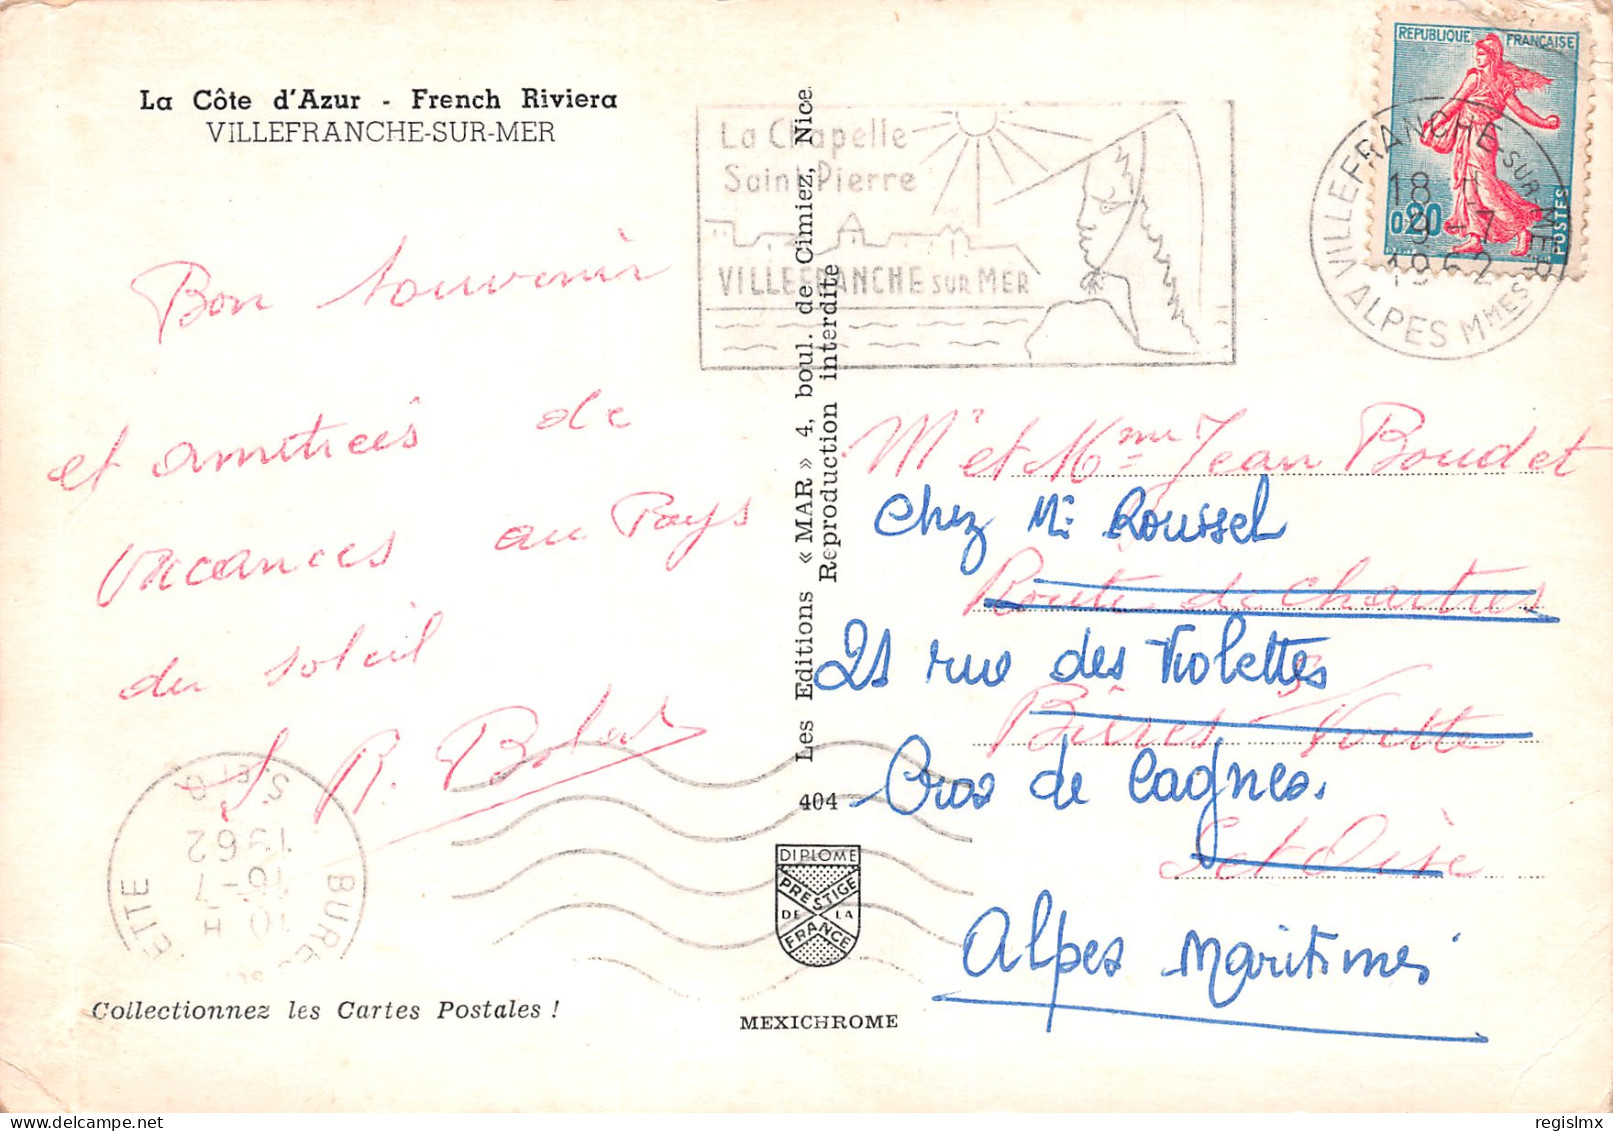 La Côte d'Azur - French Riviera
VILLEFRANCHE-SUR-MER
Bon souvenir
et amitiés de
vacances au Pays
du soleil
R.
Collectionnez les Cartes Postales !
BURES
1962
16-7
10 H
S. ET O.
Les Editions « MAR » 4, boul. de Cimiez, Nice.
Reproduction interdite
404
DIPLOME
PRESTIGE
DE LA
FRANCE
MEXICHROME
La Chapelle
Saint Pierre
VILLEFRANCHE SUR MER
REPUBLIQUE FRANÇAISE
0,20
POSTES
VILLEFRANCHE-SUR-MER
18 H
9-7
1962
ALPES MMES
Mr et Mme Jean Boudet
Chez Mr Roussel
Route de Chartres
21 rue des Violettes
Bures s/ Yvette
Cros de Cagnes.
S et Oise
Alpes Maritimes
regislmx